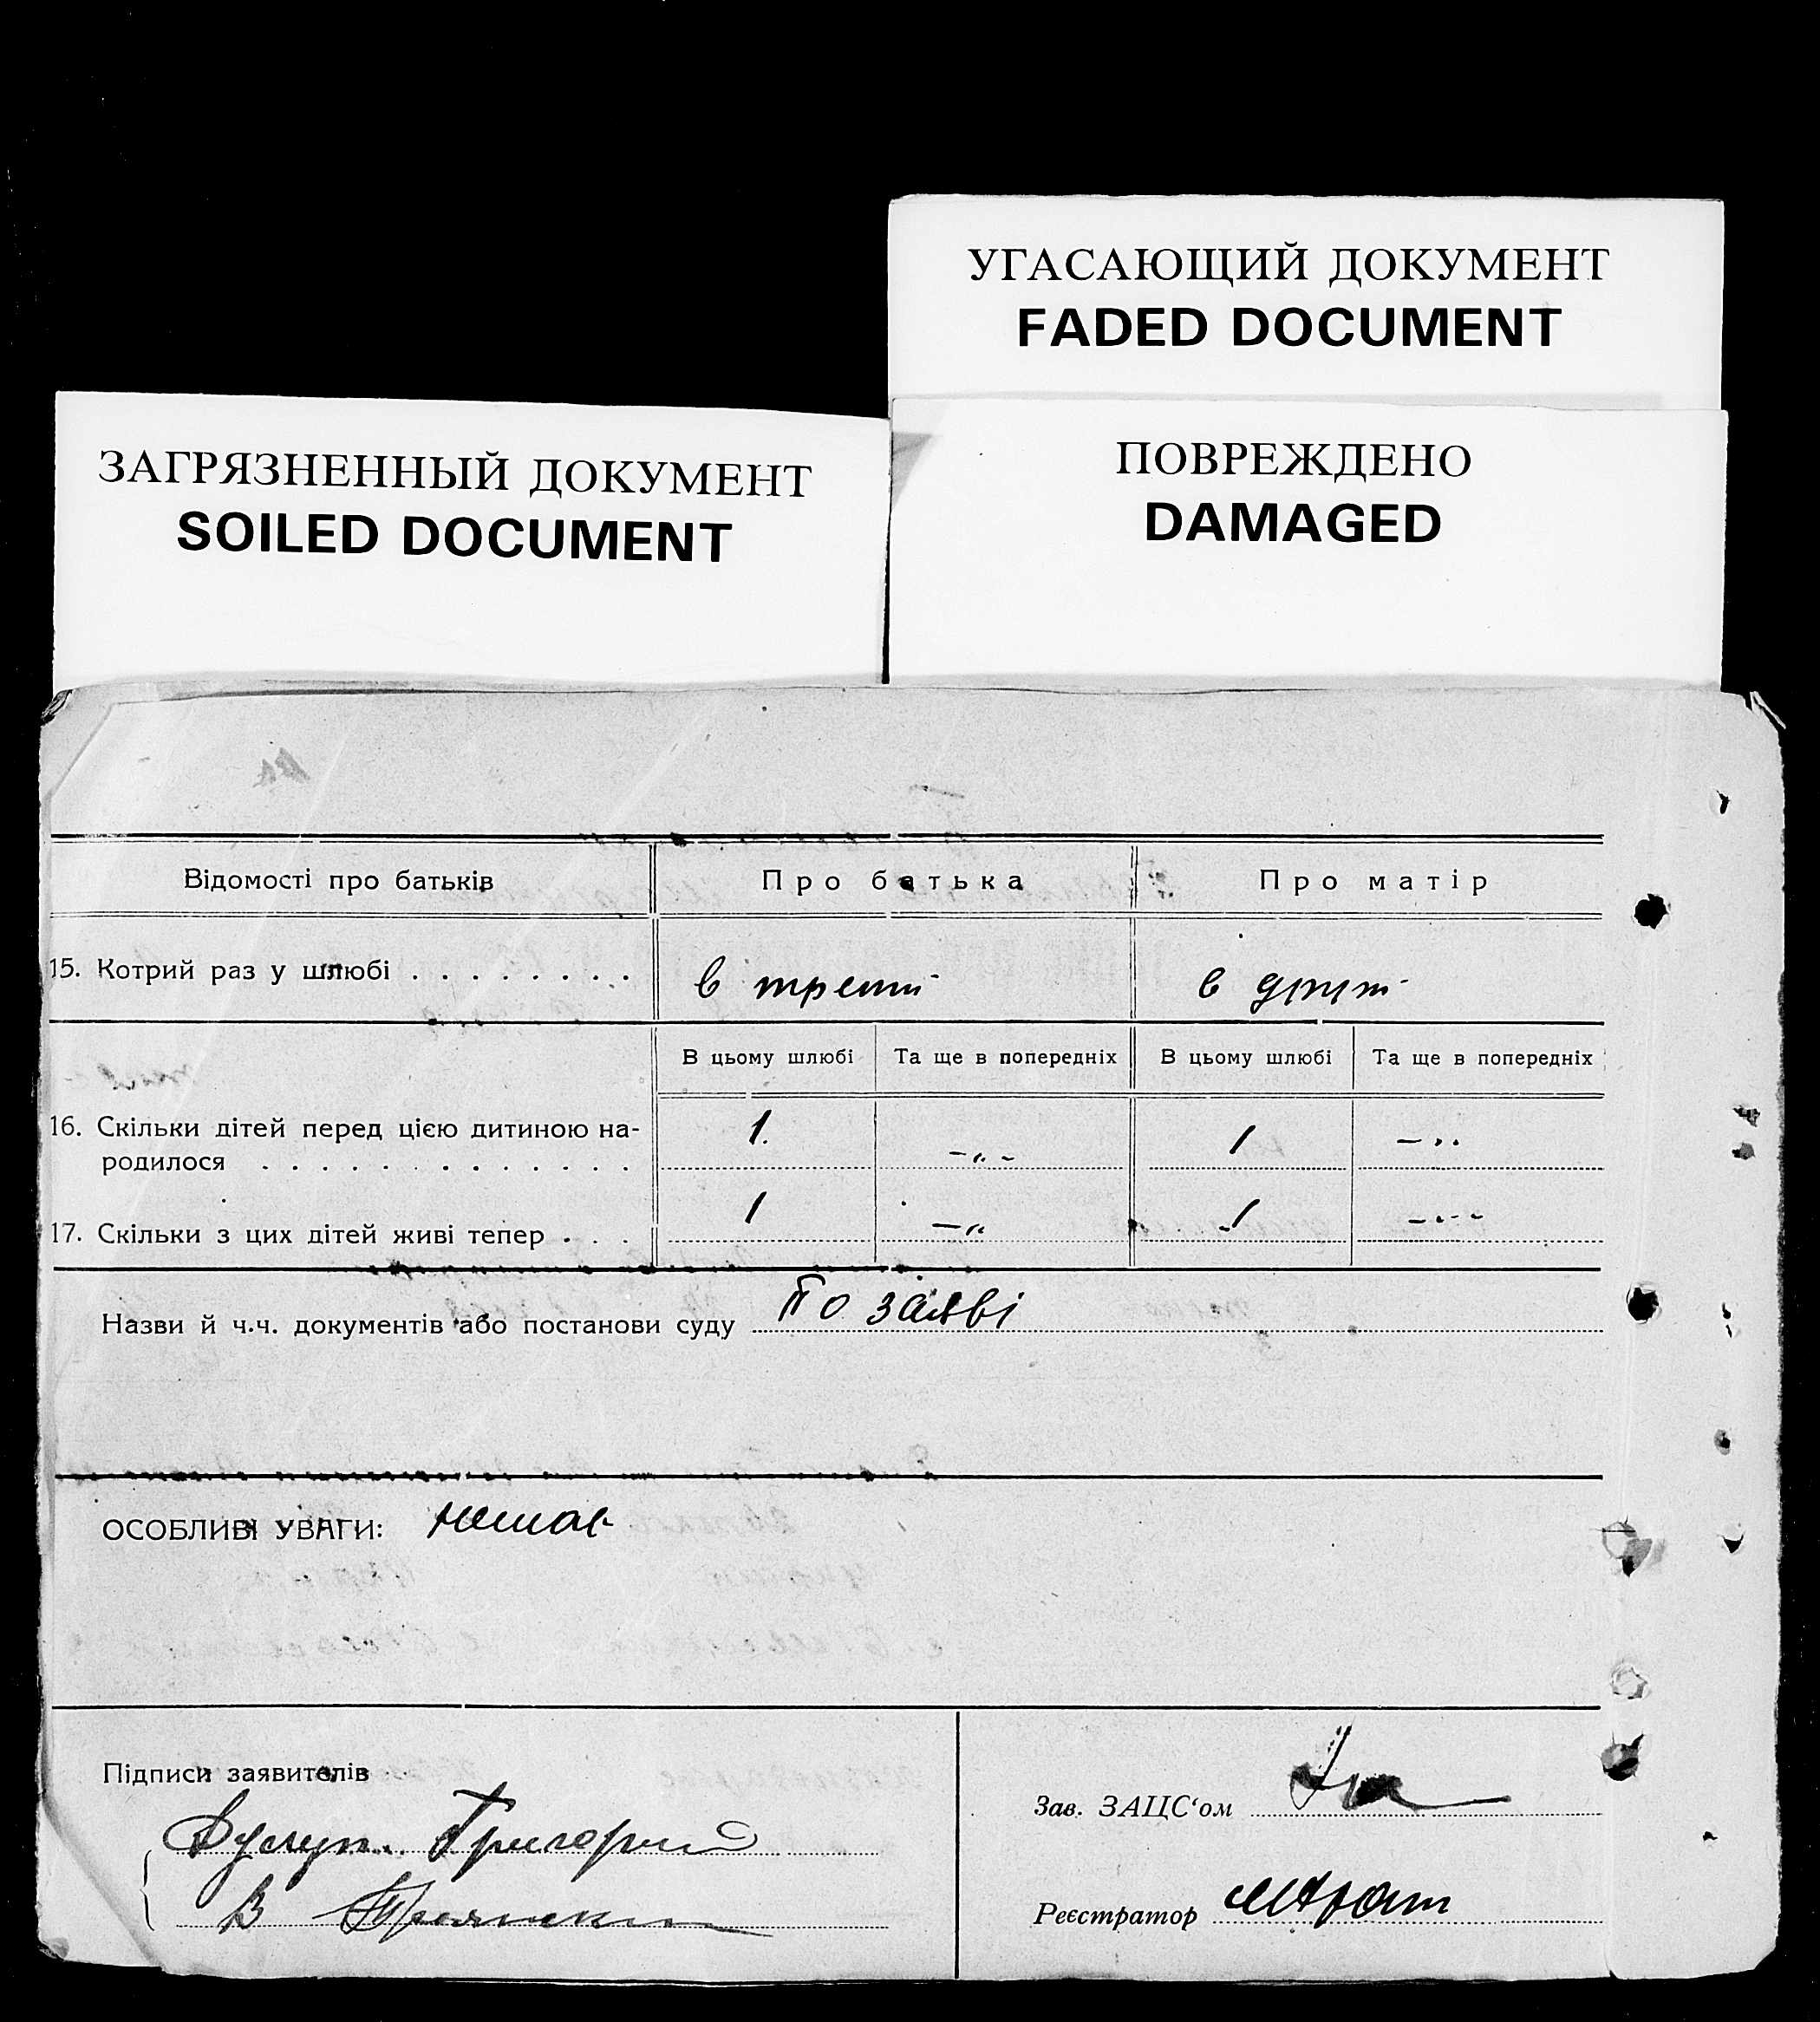 УГАСАЮЩИЙ ДОКУМЕНТ
FADED DOCUMENT
ЗАГРЯЗНЕННЫЙ ДОКУМЕНТ
SOILED DOCUMENT
ПОВРЕЖДЕНО
DAMAGED
Відомості про батьків Про батька Про матір
15. Котрий раз у шлюбі . . . . . . . . в треті в
В цьому шлюбі Та ще в попередніх В цьому шлюбі Та ще в попередніх
16. Скільки дітей перед цією дитиною на-
родилося . . . . . . . . . . . . . 1. -„- 1 -„
17. Скільки з цих дітей живі тепер . . . 1 -„ 1 -„-
Назви й ч.ч. документів або постанови суду по заяві
ОСОБЛИВІ УВАГИ: немає
Підписи заявителів
Григорий
В
Зав. ЗАЦС‘ом
Реєстратор